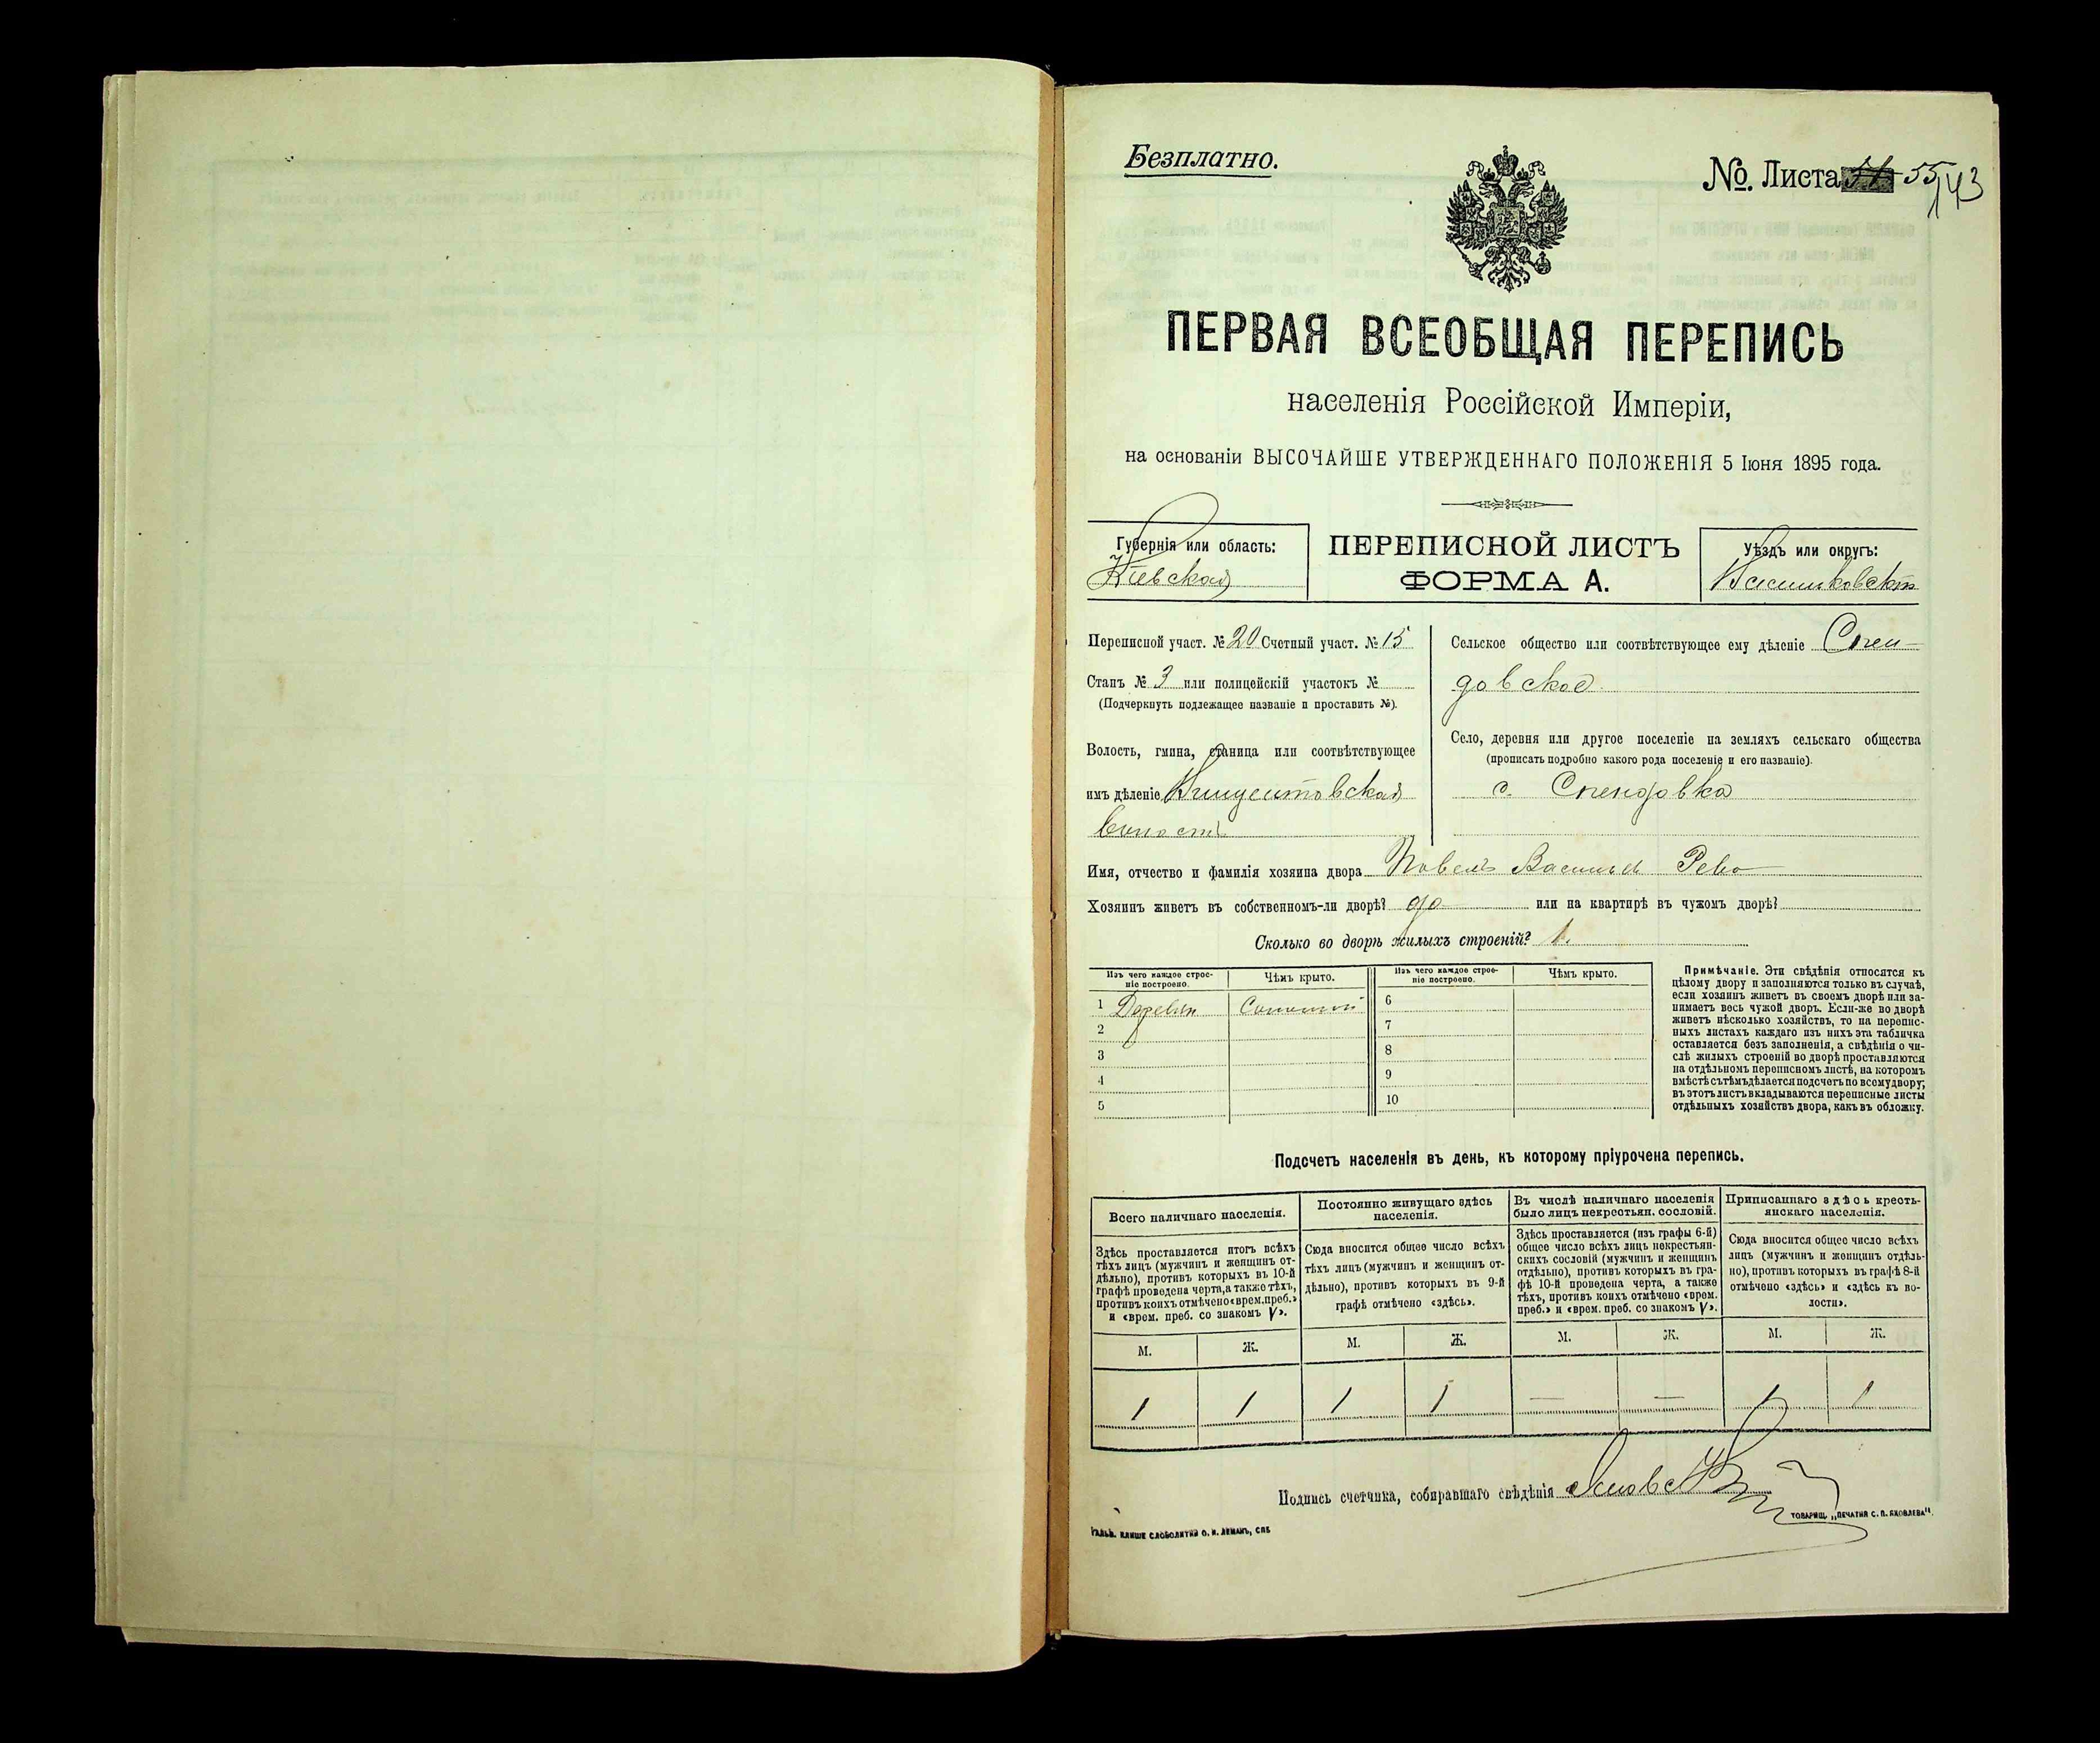 Безплатно.
№. Листа 55
143
ПЕРВАЯ ВСЕОБЩАЯ ПЕРЕПИСЬ
населенія Россійской Имперіи,
на основаніи ВЫСОЧАЙШЕ УТВЕРЖДЕННАГО ПОЛОЖЕНІЯ 5 Іюня 1895 года.
Губернія или область:
Кіевская
ПЕРЕПИСНОЙ ЛИСТЪ
ФОРМА А.
Уѣздъ или округъ:
Переписной участ. № 20 Счетный участ. № 15
Станъ № 3 или полицейскій участокъ №
(Подчеркнуть подлежащее названіе и проставить №).
Волость, гмина, станица или соотвѣтствующее
имъ дѣленіе
волость
Сельское общество или соотвѣтствующее ему дѣленіе Спен-
довское
Село, деревня или другое поселеніе на земляхъ сельскаго общества
(прописать подробно какого рода поселеніе и его названіе).
с. Спендовка
Имя, отчество и фамилія хозяина двора Павелъ Васильев Рево
Хозяинъ живетъ въ собственномъ-ли дворѣ? да или на квартирѣ въ чужомъ дворѣ?
Сколько во дворѣ жилыхъ строеній? 1.
Изъ чего каждое строе-
ніе построено.
Чѣмъ крыто.
Изъ чего каждое строе-
ніе построено.
Чѣмъ крыто.
1 Деревян Соломой
2
3
4
5
6
7
8
9
10
Примѣчаніе. Эти свѣдѣнія относятся къ
цѣлому двору и заполняются только въ случаѣ,
если хозяинъ живетъ въ своемъ дворѣ или за-
нимаетъ весь чужой дворъ. Если-же во дворѣ
живетъ нѣсколько хозяйствъ, то на перепис-
ныхъ листахъ каждаго изъ нихъ эта табличка
оставляется безъ заполненія, а свѣдѣнія о чи-
слѣ жилыхъ строеній во дворѣ проставляются
на отдѣльномъ переписномъ листѣ, на которомъ
вмѣстѣ съ тѣмъ дѣлается подсчетъ по всему двору;
въ этотъ листъ вкладываются переписные листы
отдѣльныхъ хозяйствъ двора, какъ въ обложку.
Подсчетъ населенія въ день, къ которому пріурочена перепись.
Всего наличнаго населенія.
Здѣсь проставляется итогъ всѣхъ
тѣхъ лицъ (мужчинъ и женщинъ от-
дѣльно), противъ которыхъ въ 10-й
графѣ проведена черта, а также тѣхъ,
противъ коихъ отмѣчено «врем. преб.»
и «врем. преб. со знакомъ V».
Постоянно живущаго здѣсь
населенія.
Сюда вносится общее число всѣхъ
тѣхъ лицъ (мужчинъ и женщинъ от-
дѣльно), противъ которыхъ въ 9-й
графѣ отмѣчено «здѣсь».
Въ числѣ наличнаго населенія
было лицъ некрестьян. сословій.
Здѣсь проставляется (изъ графы 6-й)
общее число всѣхъ лицъ некрестьян-
скихъ сословій (мужчинъ и женщинъ
отдѣльно), противъ которыхъ въ гра-
фѣ 10-й проведена черта, а также
тѣхъ, противъ коихъ отмѣчено «врем.
преб.» и «врем. преб. со знакомъ V».
Приписаннаго здѣсь кресть-
янскаго населенія.
Сюда вносится общее число всѣхъ
лицъ (мужчинъ и женщинъ отдѣль-
но), противъ которыхъ въ графѣ 8-й
отмѣчено «здѣсь» и «здѣсь къ во-
лости».
М. Ж. М. Ж. М. Ж. М. Ж.
1 1 1 1 — — 1 1
Подпись счетчика, собиравшаго свѣдѣнія
Гальв. клише словолитни О. И. Леманъ, СПБ
Товарищ. „Печатня С. П. Яковлева“.